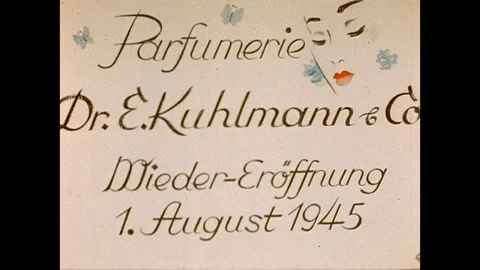 Parfumerie
Dr. E. Kuhlmann & Co
Wieder-Eröffnung
1. August 1945